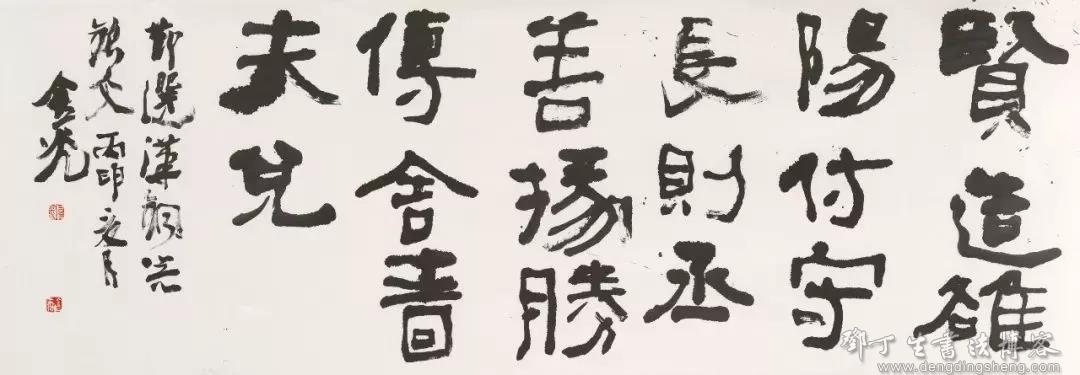 賢造雒
陽付守
長則丞
善掾勝
傳舍嗇
夫兌
節選漢銅
文丙申夏月
鄧丁生書法博客
www.dengdingsheng.com